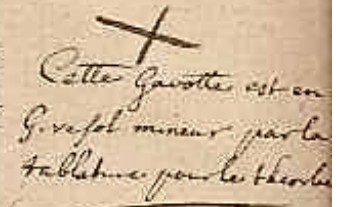 Cette Gavotte est en
G. re sol mineur par la
tablature pour le théorbe